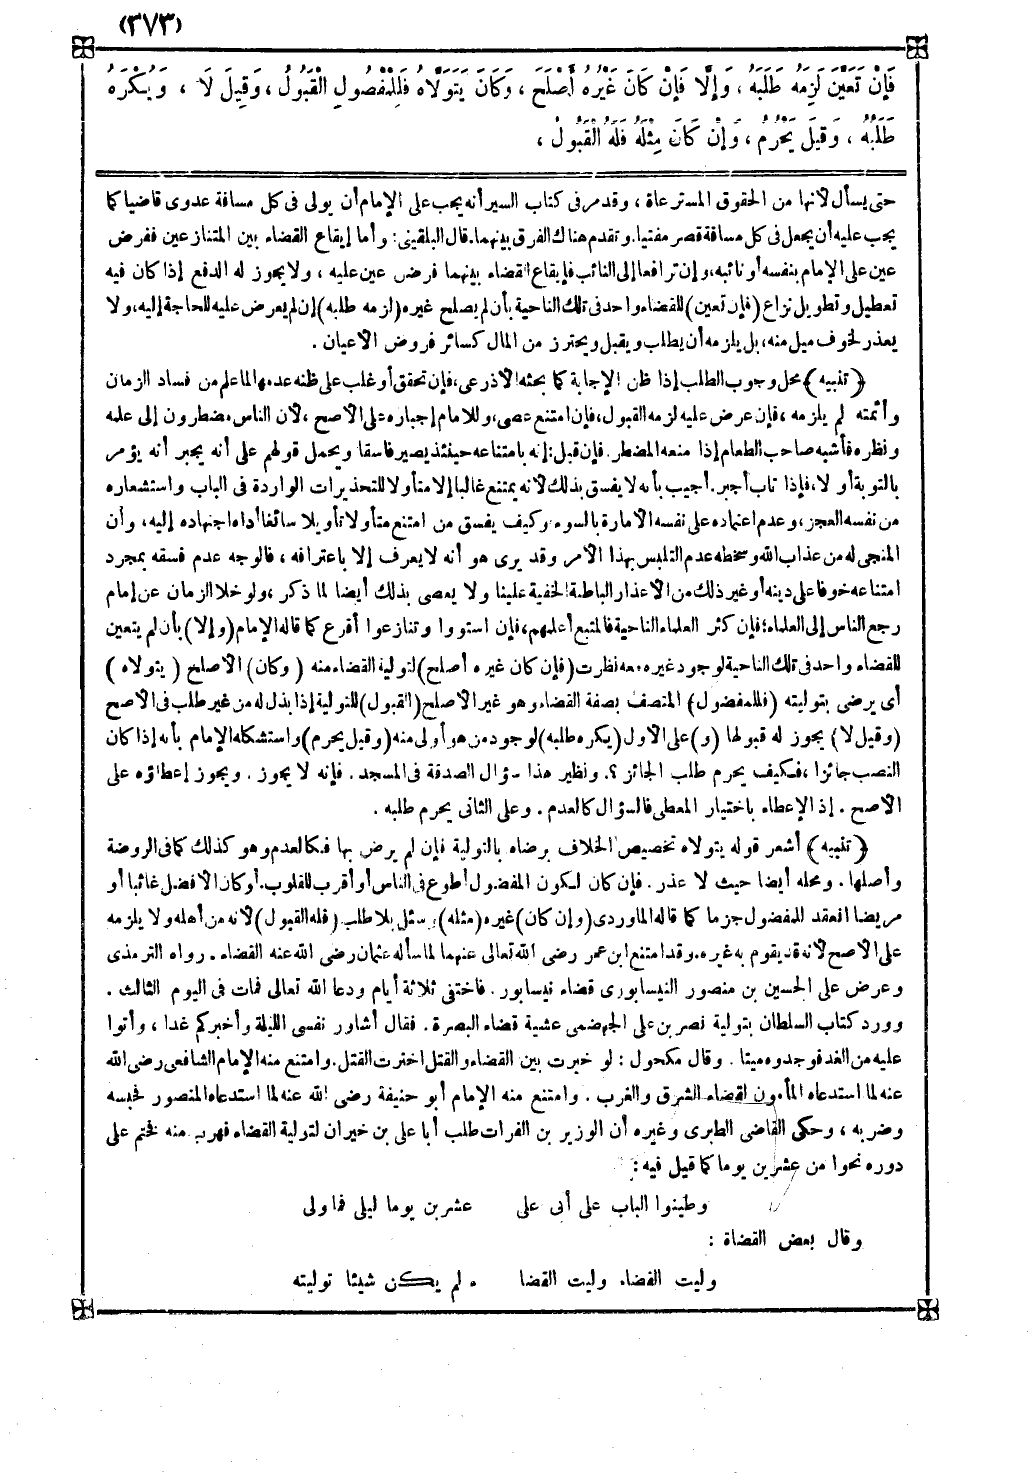 (٣٧٣)
فَإِنْ تَعَيَّنَ لَزِمَهُ طَلَبُهُ ، وَإِلَّا فَإِنْ كَانَ غَيْرُهُ أَصْلَحَ ، وَكَانَ يَتَوَلَّاهُ فَلِلْمَفْضُولِ الْقَبُولُ ، وَقِيلَ لَا ، وَيُكْرَهُ
طَلَبُهُ ، وَقِيلَ يَحْرُمُ ، وَإِنْ كَانَ مِثْلَهُ فَلَهُ الْقَبُولُ ،
حتى يسأل لأنها من الحقوق المسترعاة ، وقد مر فى كتاب السير أنه يجب على الإمام أن يولى فى كل مسافة عدوى قاضيا كما
يجب عليه أن يجعل فى كل مسافة قصر مفتيا. وتقدم هناك الفرق بينهما. قال البلقينى: وأما إيقاع القضاء بين المتنازعين ففرض
عين على الإمام بنفسه أو نائبه، وإن ترافعا إلى النائب فإيقاع القضاء بينهما فرض عين عليه ، ولا يجوز له الدفع إذا كان فيه
تعطيل وتطويل نزاع (فإن تعين) للقضاء واحد فى تلك الناحية بأن لم يصلح غيره (لزمه طلبه) إن لم يعرض عليه للحاجة إليه، ولا
يعذر لخوف ميل منه، بل يلزمه أن يطلب ويقبل ويحترز من المال كسائر فروض الأعيان .
﴿ تنبيه ﴾ محل وجوب الطلب إذا ظن الإجابة كما بحثه الأذرعى، فإن تحقق أو غلب على ظنه عدمها لما علم من فساد الزمان
وأئمته لم يلزمه ، فإن عرض عليه لزمه القبول، فإن امتنع عصى، وللإمام إجباره على الأصح ، لأن الناس مضطرون إلى علمه
ونظره فأشبه صاحب الطعام إذا منعه المضطر. فإن قيل: إنه بامتناعه حينئذ يصير فاسقا ويحمل قولهم على أنه يجبر أنه يؤمر
بالتوبة أولا، فإذا تاب أجبر. أجيب بأنه لا يفسق بذلك لأنه يمتنع غالبا إلا متأولا للتحذيرات الواردة فى الباب واستشعاره
من نفسه العجز، وعدم اعتماده على نفسه الأمارة بالسوء وكيف يفسق من امتنع متأولا تأويلا سائغا أداه اجتهاده إليه، وأن
المنجى له من عذاب الله وسخطه عدم التلبس بهذا الأمر وقد يرى هو أنه لا يعرف إلا باعترافه ، فالوجه عدم فسقه بمجرد
امتناعه خوفا على دينه أو غير ذلك من الأعذار الباطنة الخفية علينا ولا يعصى بذلك أيضا لما ذكر ، ولو خلا الزمان عن إمام
رجع الناس إلى العلماء؛ فإن كثر العلماء الناحية فالمتبع أعلمهم، فإن استووا وتنازعوا أقرع كما قاله الإمام (وإلا) بأن لم يتعين
للقضاء واحد فى تلك الناحية لوجود غيره معه نظرت (فإن كان غيره أصلح) لتولية القضاء منه ( وكان) الأصلح ( يتولاه )
أى يرضى بتوليته (فللمفضول) المتصف بصفة القضاء وهو غير الأصلح (القبول) للتولية إذا بذل له من غير طلب فى الأصح
(وقيل لا) يجوز له قبولها (و) على الأول (يكره طلبه) لوجود من هو أولى منه (وقيل يحرم) واستشكله الإمام بأنه إذا كان
النصب جائزا ، فكيف يحرم طلب الجائز ؟. ونظير هذا سؤال الصدقة فى المسجد . فإنه لا يجوز . ويجوز إعطاؤه على
الأصح . إذ الإعطاء باختيار المعطى فالسؤال كالعدم . وعلى الثانى يحرم طلبه .
﴿ تنبيه ﴾ أشعر قوله يتولاه تخصيص الخلاف برضاه بالتولية فإن لم يرض بها فكالعدم وهو كذلك كما فى الروضة
وأصلها . ومحله أيضا حيث لا عذر . فإن كان لكون المفضول أطوع فى الناس أو أقرب للقلوب. أو كان الأفضل غائبا أو
مريضا انعقد للمفضول جزما كما قاله الماوردى (وإن كان) غيره (مثله) وسئل بلا طلب (فله القبول) لأنه من أهله ولا يلزمه
على الأصح لأنه قد يقوم به غيره. وقد امتنع ابن عمر رضى الله تعالى عنهما لما سأله عثمان رضى الله عنه القضاء . رواه الترمذى
وعرض على الحسين بن منصور النيسابورى قضاء نيسابور . فاختفى ثلاثة أيام ودعا الله تعالى فمات فى اليوم الثالث .
وورد كتاب السلطان بتولية نصر بن على الجهضمى عشية قضاء البصرة . فقال أشاور نفسى الليلة وأخبركم غدا ، وأتوا
عليه من الغد فوجدوه ميتا . وقال مكحول : لو خيرت بين القضاء والقتل اخترت القتل. وامتنع منه الإمام الشافعى رضى الله
عنه لما استدعاه المأمون لقضاء الشرق والغرب . وامتنع منه الإمام أبو حنيفة رضى الله عنه لما استدعاه المنصور فحبسه
وضربه ، وحكى القاضى الطبرى وغيره أن الوزير بن الفرات طلب أبا على بن خيران لتولية القضاء فهرب منه فختم على
دوره نحوا من عشرين يوما كما قيل فيه :
وطينوا الباب على أبى على عشرين يوما ليلى فما ولى
وقال بعض القضاة :
وليت القضاء وليت القضا . لم يكن شيئا توليته